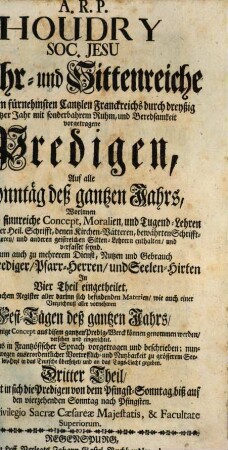 A. R. P.
HOUDRY
SOC. JESU
hr- und Sittenreiche
n fürnehmsten Cantzlen Franckreichs durch dreyßig
tzer Jahr mit sonderbahrem Ruhm, und Beredsamkeit
vorgetragene
Predigen,
Auf alle
onntäg deß gantzen Jahrs,
Worinnen
sinnreiche Concept, Moralien, und Tugend-Lehren
er Heil. Schrifft, denen Kirchen-Vätteren, bewährten Schrifft-
gren, und anderen geistreichen Sitten-Lehrern enthalten, und
verfasset seynd.
um auch zu mehrerem Dienst, Nutzen und Gebrauch
rediger, Pfarr-Herren, und Seelen-Hirten
In
Vier Theil eingetheilet.
chen Register aller darinn sich befindenden Materien, wie auch einer
Verzeichnuß aller vornehmen
Fest-Tägen deß gantzen Jahrs,
nige Concept aus disem gantzen Predig-Werck können genommen werden,
versehen und eingerichtet.
s in Frantzösischer Sprach vorgetragen und beschrieben; nun-
wegen ausserordentlicher Vortrefflich- und Nutzbarkeit zu grösserem See-
in das Teutsch übersetzet und an das Tags-Liecht gegeben.
Dritter Theil,
t in sich die Predigen von dem Pfingst-Sonntag, biß auf
den vierzehenden Sonntag nach Pfingsten.
ivilegio Sacræ Cæsareæ Majestatis, & Facultate
Superiorum.
REGENSPURG,